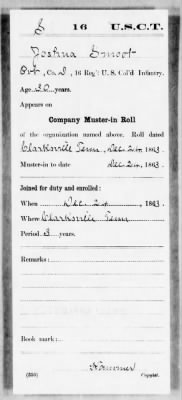 S 16 U.S.C.T.
Joshua Smoot
Pvt, Co. D, 16 Reg't U. S. Col'd Infantry.
Age 30 years.
Appears on
Company Muster-in Roll
of the organization named above. Roll dated
Clarksville Tenn, Dec. 24, 1863.
Muster-in to date Dec. 24, 1863.
Joined for duty and enrolled:
When Dec. 24, 1863.
Where Clarksville Tenn
Period 3 years.
Remarks:
Book mark:
(356) Copyist.